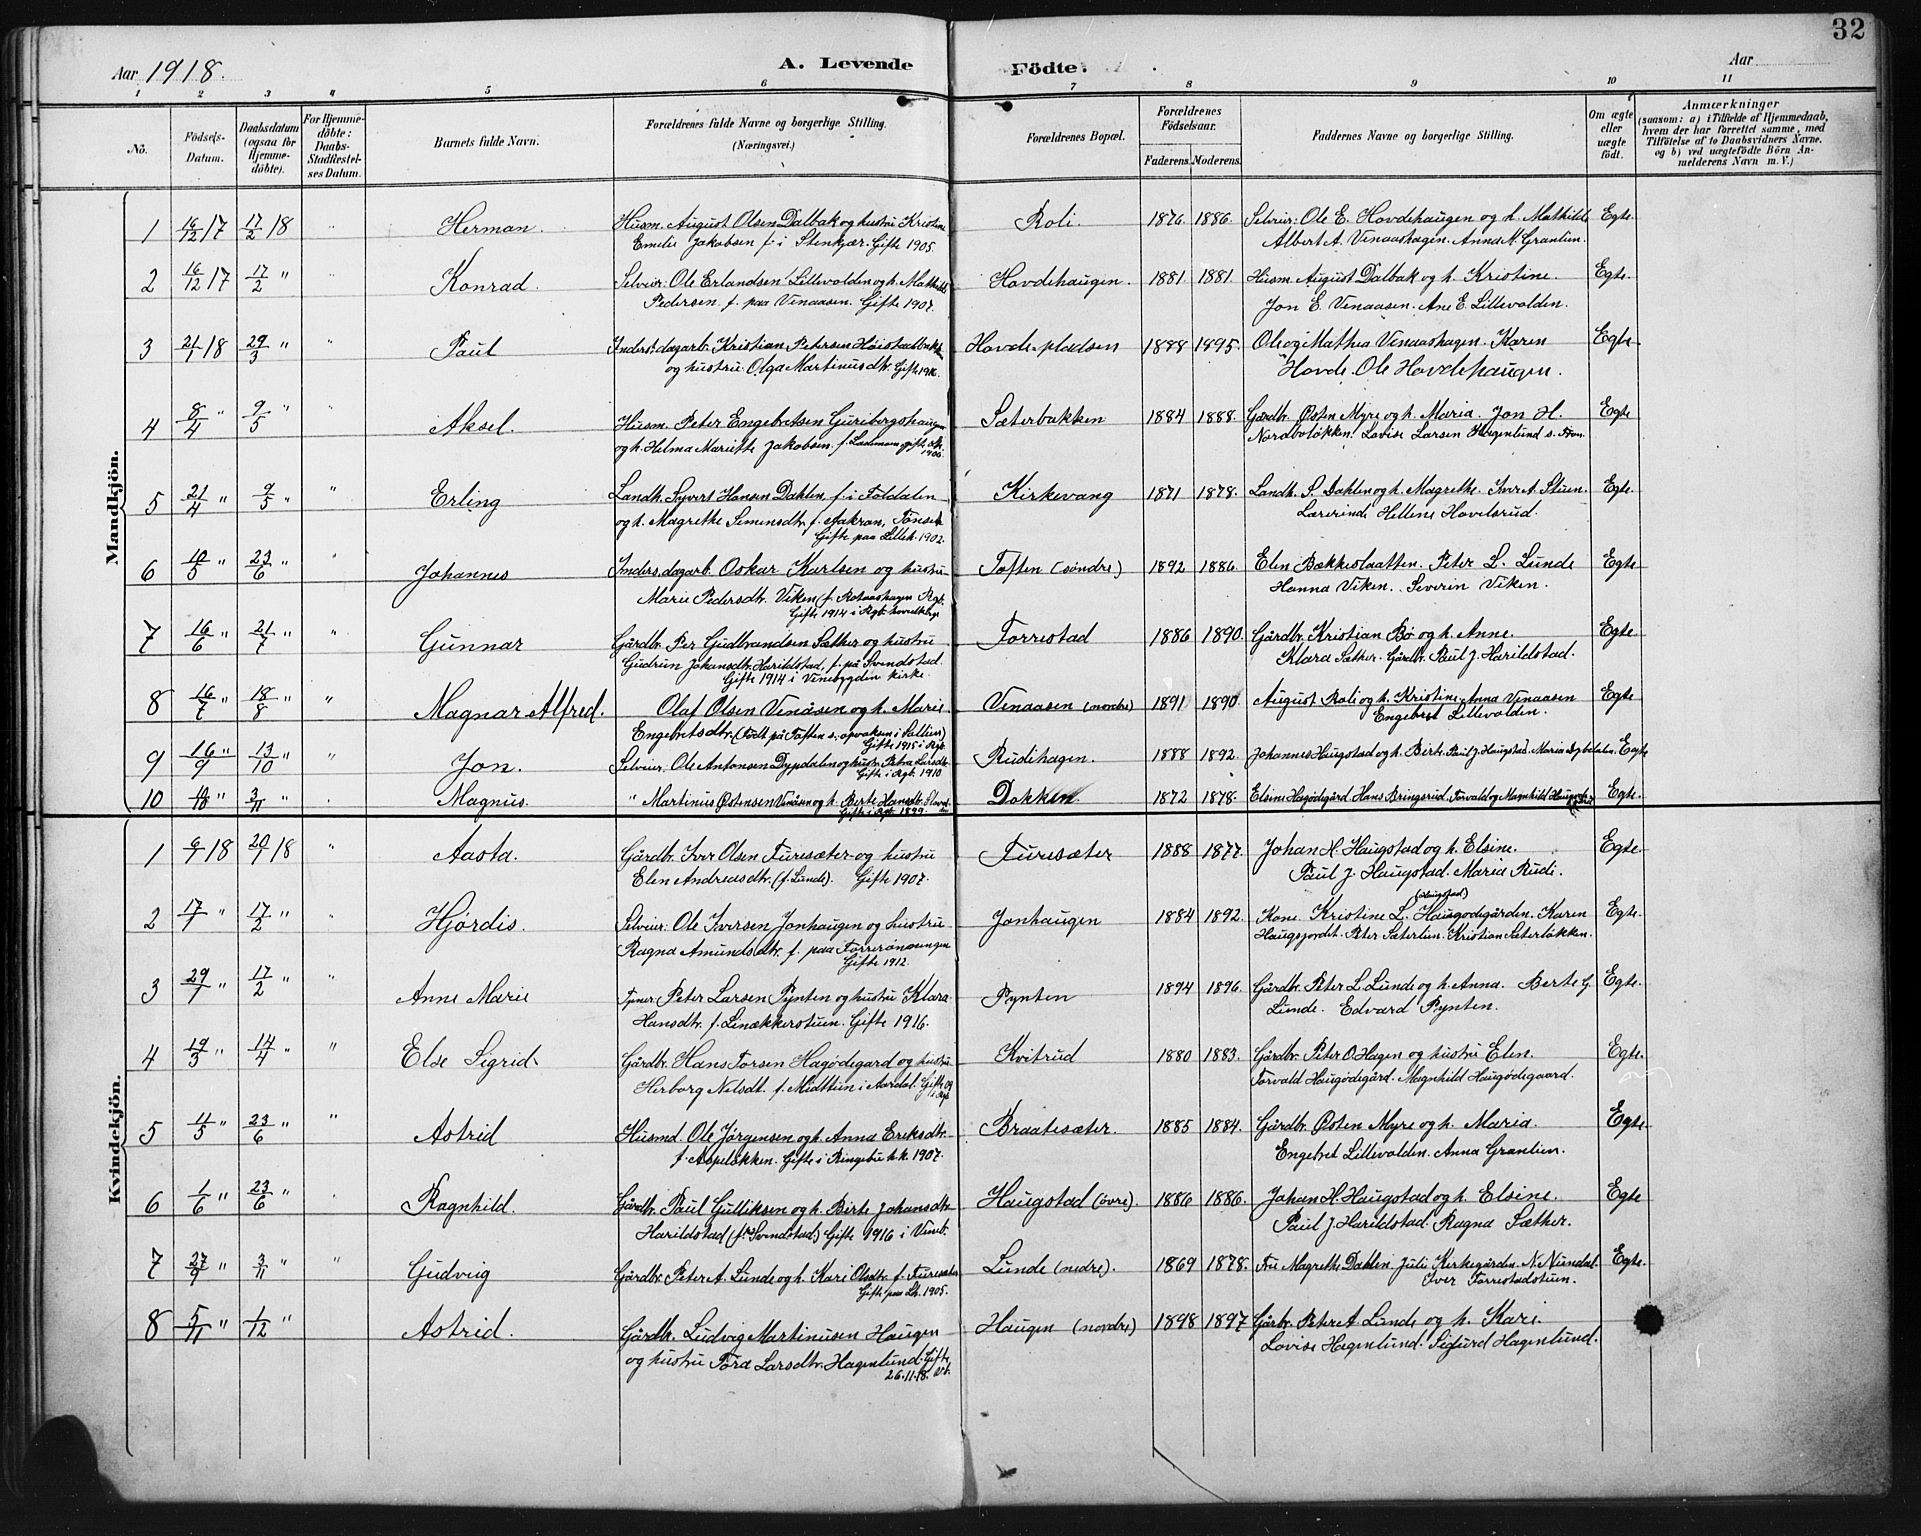 32
Aar 1918.
A. Levende Födte.
Aar
1 2 3 4 5 6 7 8 9 10 11
No.
Födsels-Datum.
Daabsdatum (ogsaa for Hjemme-döbte).
For Hjemme-döbte: Daabs-Stadfæstel-ses Datum.
Barnets fulde Navn.
Forældrenes fulde Navne og borgerlige Stilling. (Næringsvei.)
Forældrenes Bopæl.
Forældrenes Födselsaar.
Faderens. Moderens.
Faddernes Navne og borgerlige Stilling.
Om ægte eller uægte födt.
Anmærkninger
(saasom: a) i Tilfælde af Hjemmedaab, hvem der har forrettet samme, med Tilföielse af to Daabsvidners Navne, og b) ved uægtefödte Börn An-melderens Navn m. V.)
Mandkjön.
1 16/12 17 17/2 18 " Herman. Husm. August Olsen Dalbak og hustru Kristine Roli. 1876 1886. Selveier: Ole E. Hovdehaugen og h. Mathilde Egte.
Emelie Jakobsen f. i Stenkjær. Gifte 1905. Albert A. Venaashagen. Anna M. Grantien.
2 16/12 17 17/2 " " Konrad. Selveier. Ole Erlandsen Lillevolden og h. Mathilde Hovdehaugen. 1881 1881 Husm August Dalbak og h. Kristine. Egte.
Pedersen f. paa Venaasen. Gifte 1907. Jon E. Venaasen. Ane E. Lillevolden.
3 21/1 18 29/3 " " Paul Inderst. dagarb. Kristian Petersen Hovde-pladsen 1888 1895. Ole og Mathea Venaashagen. Karen Egte
og hustru Olga Martinusdtr. Gifte 1916. Hovde. Ole Hovdehaugen.
4 8/4 " 9/5 " " Aksel. Husm. Peter Engebretsen Guribergshaugen Sæterbakken 1884 1888. Gårdbr. Østen Myre og h. Maria. Jon H. Egte
og h. Helma Mariette Jakobsen. Nordboløkken. Lovise Larsen Hagenlund
5 21/4 " 9/5 " " Erling Landh. Syvert Hansen Dahlen f. i Foldalen Kirkevang 1871 1878. Landh. S. Dahlen og h. Magrethe. Iver A. Stuen. Egte
og h. Magrethe Simensdtr. f. Aakran, Tønset. Lærerinde Hellene Hovelsrud.
Gifte paa Lilleh. 1902.
6 10/5 " 23/6 " " Johannes Inders. dagarb. Oskar Karlsen og hustru Toften (søndre) 1892 1886. Elen Bækkeslaatten. Peter L. Lunde Egte
Marie Pedersdtr. Viken Hanna Viken. Severin Viken.
Gifte 1914 i Rgb.
7 16/6 " 21/7 " " Gunnar Gårdbr. Per Gudbrandsen Sæther og hustru Forrestad 1886 1890. Gårdbr. Kristian Bø og h. Anne. Egte
Gudrun Johansdtr. Harildstad, f. på Svendstad. Klara Sæther. Gårdbr. Paul J. Harildstad.
Gifte 1914 i Venebygden kirke.
8 16/7 " 18/8 " " Magnar Alfred. Olaf Olsen Venåsen og h. Marie Venaasen (nordre) 1891 1890. August Roli og h. Kristine. Anna Venaasen Egte
Engebretsdtr. (Født på Toften s. opvoksen i Gifte 1915 i Rgb. Engebret Lillevolden.
9 16/9 " 13/10 " " Jon. Selveier. Ole Antonsen Dypdalen og hustr. Petra Larsdtr. Rudihagen. 1888 1892. Johannes Haugstad og h. Birte. Paul J. Haugstad. Maria Dybdalen. Egte
Gifte i Rgb. 1910
10 /10 3/11 " Magnus. " Martinus Østensen Venåsen og h. Berte Hansdtr. Dokken. 1872 1878. Elsine Hagødegård Hans Bringsrud. Torvald og Magnhild Egte.
Gifte i Rgb. 1899.
Kvindekjön.
1 6/1 18 20/1 18 " Aasta. Gårdbr. Iver Olsen Furusæter og hustru Furusæter 1888 1877. Johan H. Haugstad og h. Elsine. Egte.
Elen Andreasdtr. (f. Lunde). Gifte 1907. Paul J. Haugstad. Maria Rudi.
2 17/1 " 17/2 " Hjørdis. Selveier. Ole Iversen Jonhaugen og hustru Jonhaugen 1884 1892. Kone Kristine L. Haugødegården. (Haugstad) Karen Egte.
Ragna Amundsdtr. f. paa Haugsjordet. Peter Sæterlien. Kristian Sæterløkken.
Gifte 1912.
3 29/1 " 17/2 " " Anne Marie Peter Larsen Pynten og hustru Klara Pynten 1894 1896. Gårdbr. Peter L. Lunde og h. Anna. Berte G. Egte.
Hansdtr. f. Linækkerstuen. Gifte 1916. Lunde. Edvard Pynten.
4 19/3 " 14/4 " " Else Sigrid Gårdbr. Hans Torsen Hagødegard og hustru Kvitrud 1880 1883. Gårdbr. Peter O. Hagen og hustru Elen. Egte.
Herborg Nilsdt. f. Midttun i Aardal. Torvald Haugødegård. Magnhild Haugødegaard.
5 /5 " 23/6 " " Astrid Husmd. Ole Jørgensen og h. Anna Eriksdtr. Braatesæter. 1885 1884. Gårdbr. Østen Myre og h. Maria. Egte
f. Aspeløkken. Gifte i Ringebu h.k. 1907. Engebret Lillevolden. Anna Grantien.
6 1/6 " 23/6 " Ragnhild. Gårdbr. Paul Gulliksen og h. Birte Johansdtr. Haugstad (øvre). 1886 1886. Johan H. Haugstad og h. Elsine. Egte
Harildstad (f. Svendstad) Gifte 1916 i Veneb. Paul J. Harildstad. Ragna Sæther.
7 27/9 " 3/11 " " Gudvig Gårdbr. Peter A. Lunde og h. Kari Olsdtr. f. Furusæter Lunde (nedre). 1869 1878. Fru Magrethe Dahlen. Juli Kirkegården. Egte.
Gifte paa Lh. 1905. Iver Forrestadstuen.
8 5/11 " 1/12 " Astrid. Gårdbr. Ludvig Martinusen Haugen Haugen (nordre) 1898 1897 Gårbr. Peter A. Lunde og h. Kari.
og hustru Tora Larsdtr. Hagenlund. Gifte 26.11.18. Lovise Hagenlund. Sigurd Hagenlund.